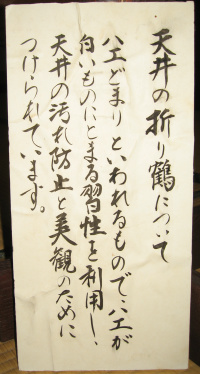 天井の折り鶴について
ハエどまりといわれるもので、ハエが
白いものにとまる習性を利用し、
天井の汚れ防止と美観のために
つけられています。